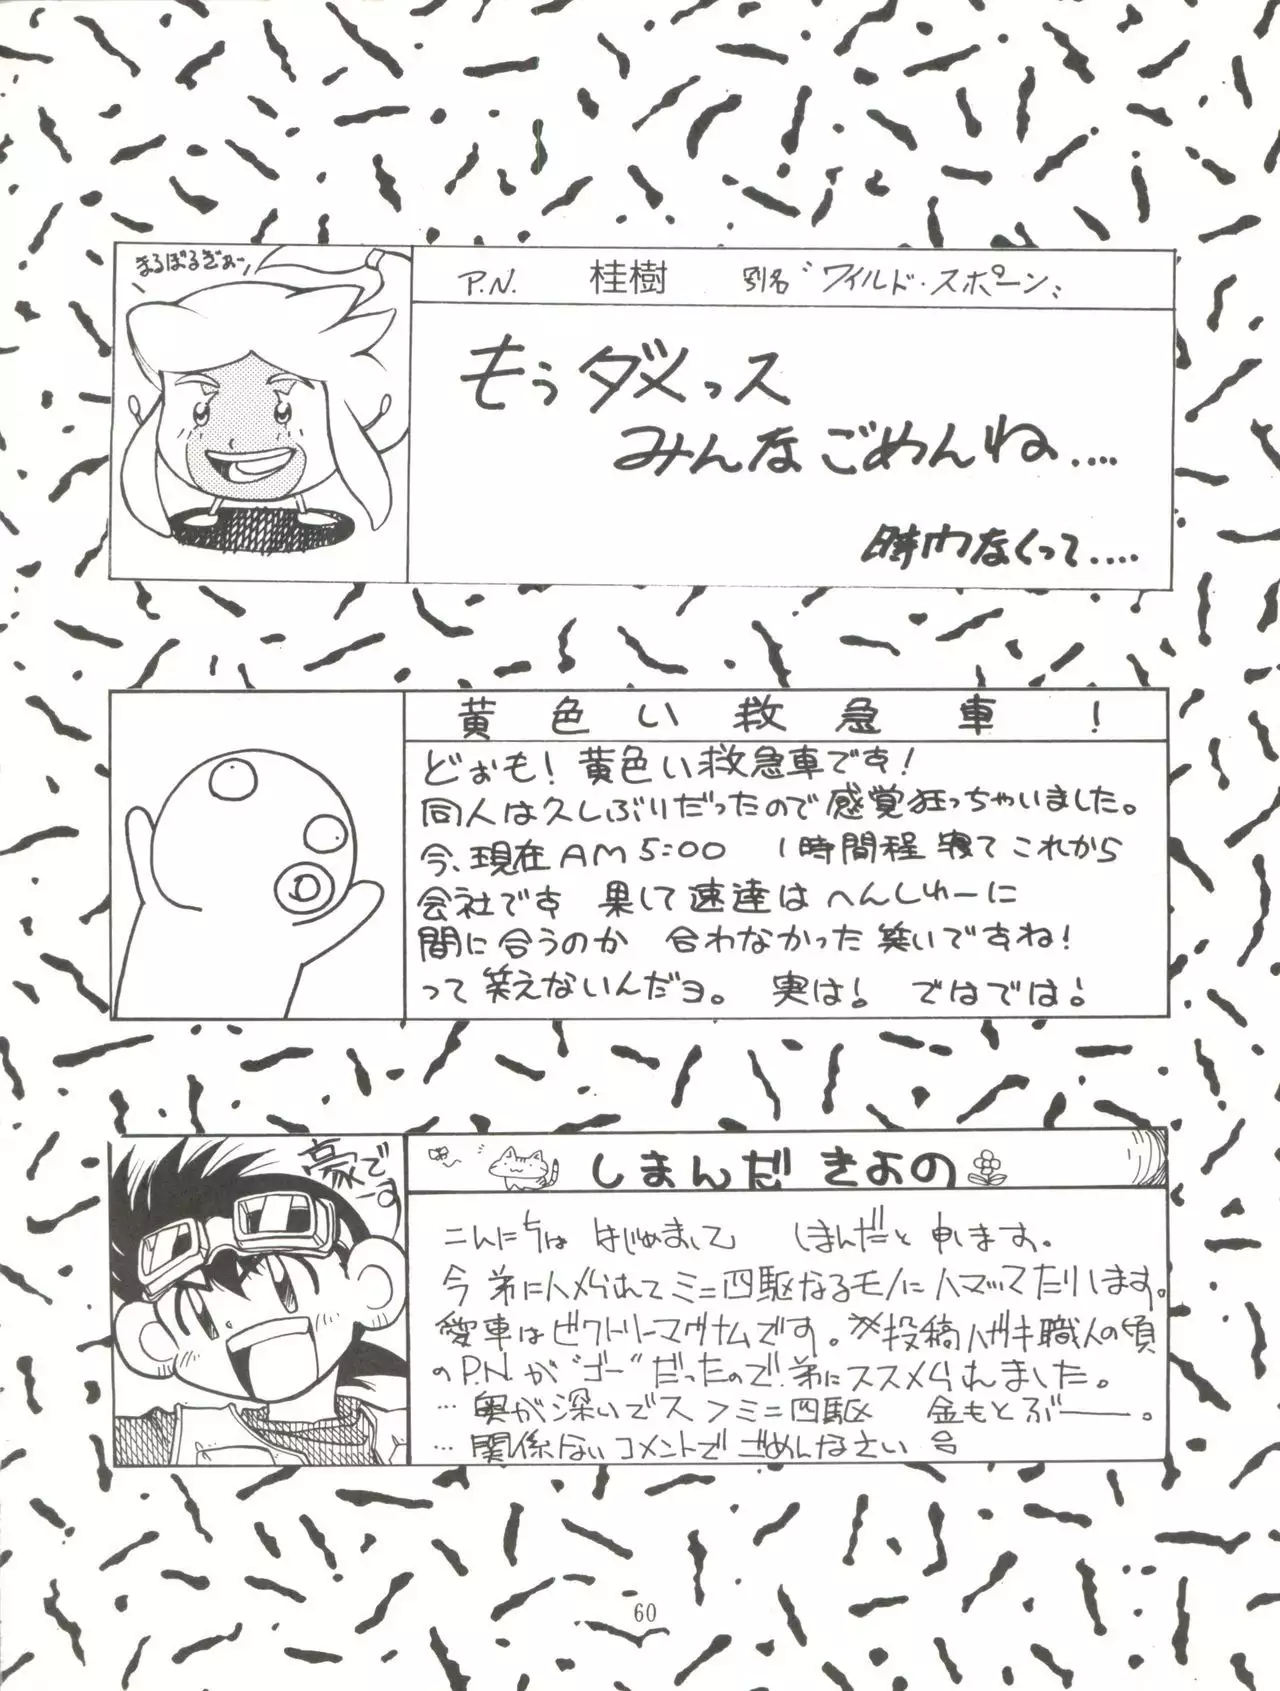 まるぼるぎぉーッ
P.N. 桂樹 別名〝ワイルド・スポーン〟
もうダメっス
みんなごめんね‥‥
時間なくって‥‥
黄色い救急車!
どぉも!黄色い救急車です!
同人は久しぶりだったので感覚狂っちゃいました。
今、現在AM5:00 1時間程寝てこれから
会社です 果して速達はへんしゅーに
間に合うのか 合わなかった笑いですね!
って笑えないんだヨ。 実は! ではでは!
豪です
しまんだきよの
こんにちは はじめまして しまんだと申します。
今弟にハメられてミニ四駆なるモノにハマッてたりします。
愛車はビクトリーマグナムです。※投稿ハガキ職人の頃
のP.N.が〝ゴー〟だったので弟にススメられました。
…奥が深いでスァミニ四駆 金もとぶーー。
…関係ないコメントでごめんなさい
60